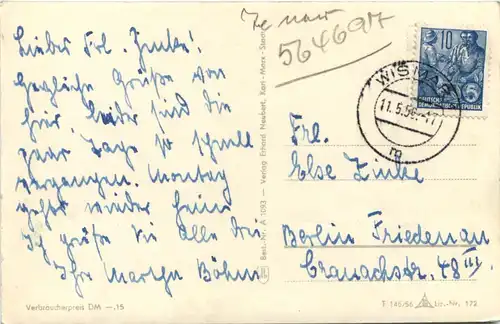 Lieber Frl. Zinke!
Herzliche Grüße von
hier, leider sind die
paar Tage so schnell
vergangen. Montag
gehts wieder heim
Ich grüße Sie alle
Ihre Martha Böhm
Verbraucherpreis DM —.15
Best.-Nr. A 1093 - Verlag Erhard Neubert, Karl-Marx-Stadt
564697
10
5
DEUTSCHE
DEMOKRATISCHE REPUBLIK
WISMAR
11.5.56.-17
m
Frl.
Else Zinke
Berlin Friedenau
Cranachstr. 48 III
T 145/56 Liz.-Nr. 172